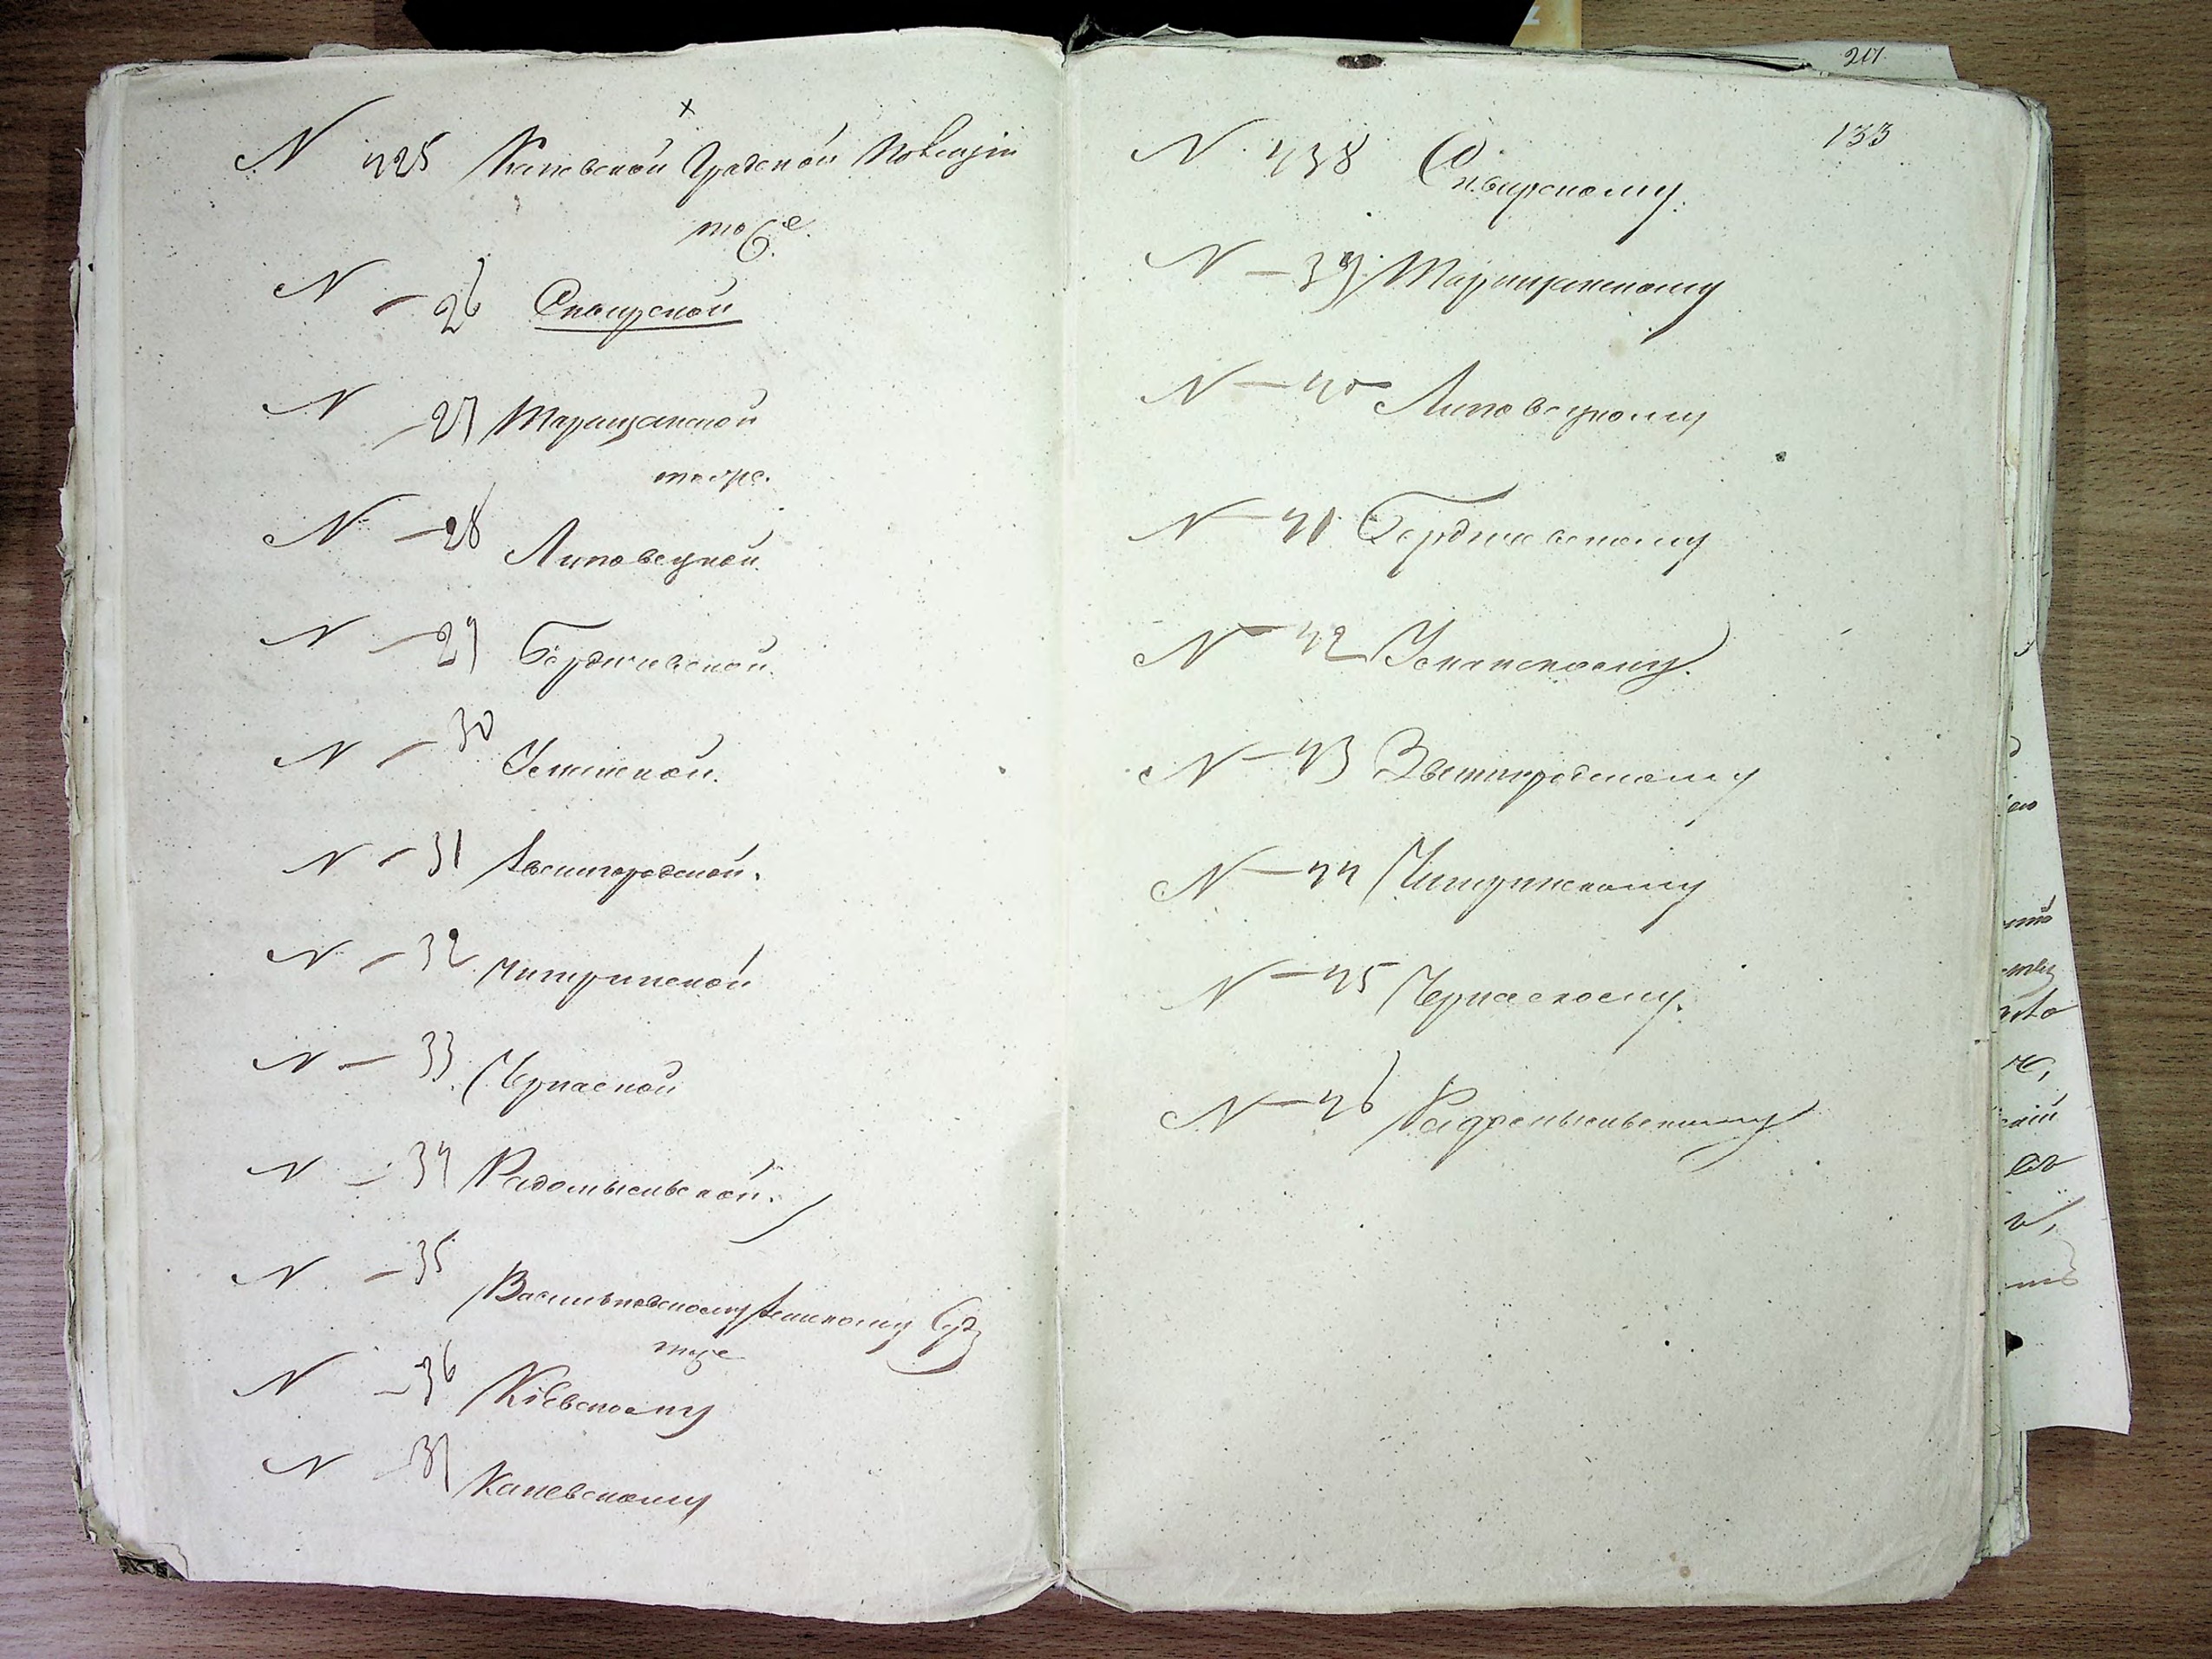 ×
N 425 Каневской Градской Полиціи
тоже.
N — 26 Сквирской
N — 27 Таращанской
тоже.
N — 28 Липовецкой.
N — 29 Бердичевской.
N — 30 Уманской.
N — 31 Звенигородской.
N — 32 Чигиринской
N — 33 Черкаской
N — 34 Радомысльской.
N — 35 Васильковскому Земскому Суду
тоже
N — 36 Кіевскому
N — 37 Каневскому
211
133
N 438 Сквирскому.
N — 39 Таращанскому
N — 40 Липовецкому
N — 41 Бердичевскому
N — 42 Уманскому.
N — 43 Звенигородскому
N — 44 Чигиринскому
N — 45 Черкаскому.
N — 46 Радомысльскому